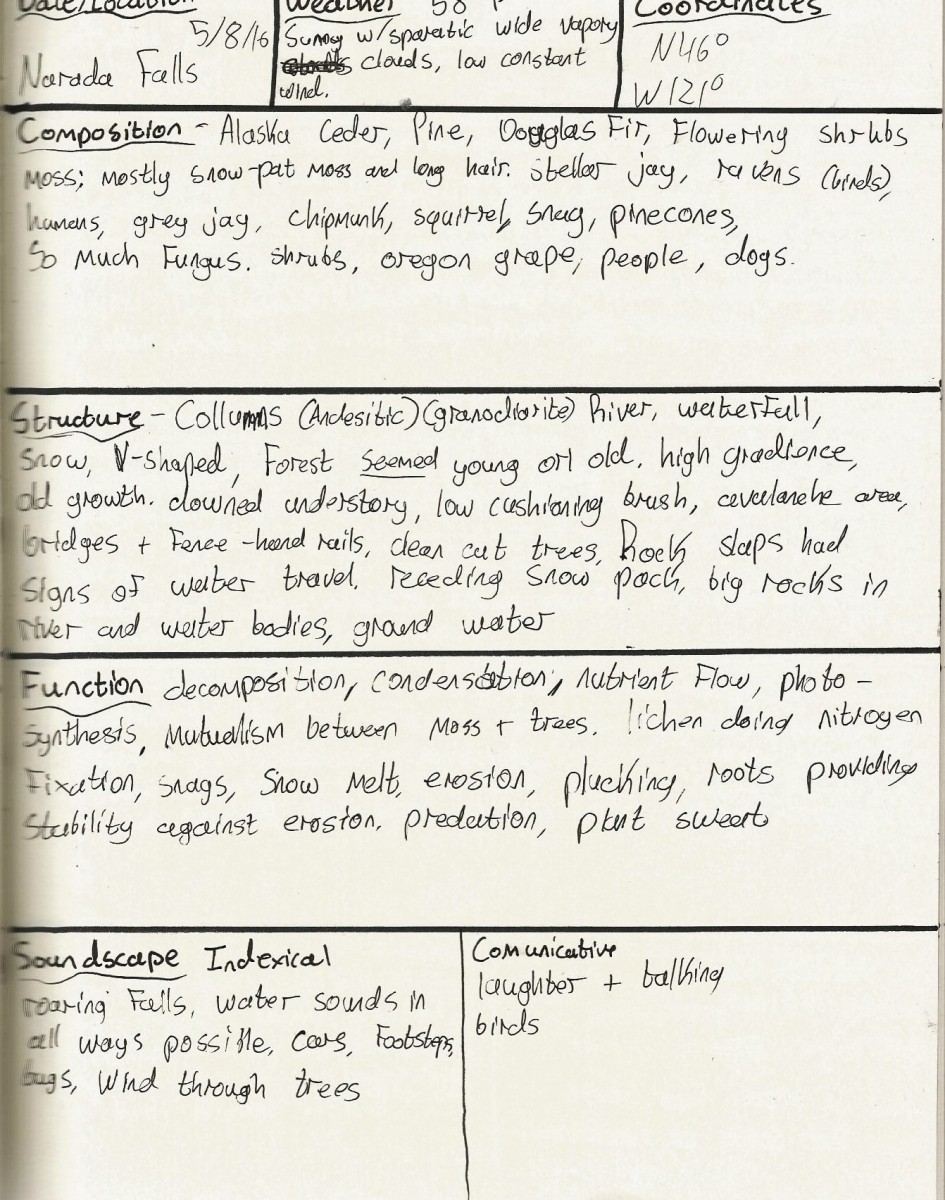 Date/Location
5/8/16
Narada Falls
Weather 58° F
Sunny w/sparatic wide vapory
clouds, low constant
wind.
Coordinates
N46°
W121°
Composition - Alaska Ceder, Pine, Douglas Fir, Flowering shrubs
moss; mostly snow-pat moss and long hair. stellar jay, ravens (birds),
humans, grey jay, chipmunk, squirrel, snag, pinecones,
So much Fungus. shrubs, oregon grape, people, dogs.
Structure - Collumns (Andesitic) (granodiorite) River, waterfall,
Snow, V-shaped, Forest seemed young orl old. high gradience,
old growth. downed understory, low cushioning brush, avalanche area,
bridges + Fence-hand rails, clean cut trees, Rock slaps had
signs of water travel. receding snow pack, big rocks in
river and water bodies, ground water
Function decomposition, condensation, nutrient Flow, photo-
synthesis, Mutuallism between moss + trees. lichen doing nitrogen
Fixation, snags, Snow melt, erosion, plucking, roots providing
Stability against erosion. predation, plant sweat
Soundscape Indexical
roaring Falls, water sounds in
all ways possible, Cars, Footsteps,
bugs, Wind through trees
Comunicative
laughter + talking
birds